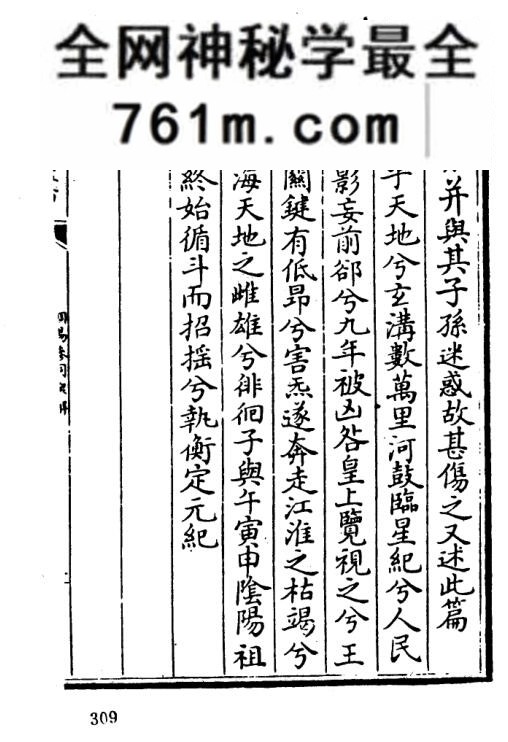 全网神秘学最全
761m.com
并與其子孫迷惑故甚傷之又述此篇
乎天地兮玄溝數萬里河鼓臨星紀兮人民
影妄前郤兮九年被凶咎皇上覽視之兮王
關鍵有低昂兮害炁遂奔走江淮之枯竭兮
海天地之雌雄兮徘徊子與午寅申陰陽祖
終始循斗而招摇兮執衡定元紀
309